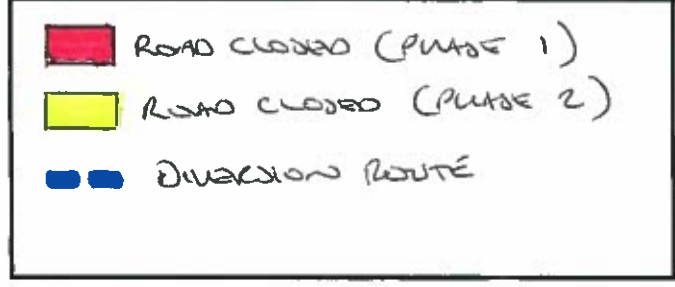 ROAD CLOSED (PHASE 1)
ROAD CLOSED (PHASE 2)
DIVERSION ROUTE